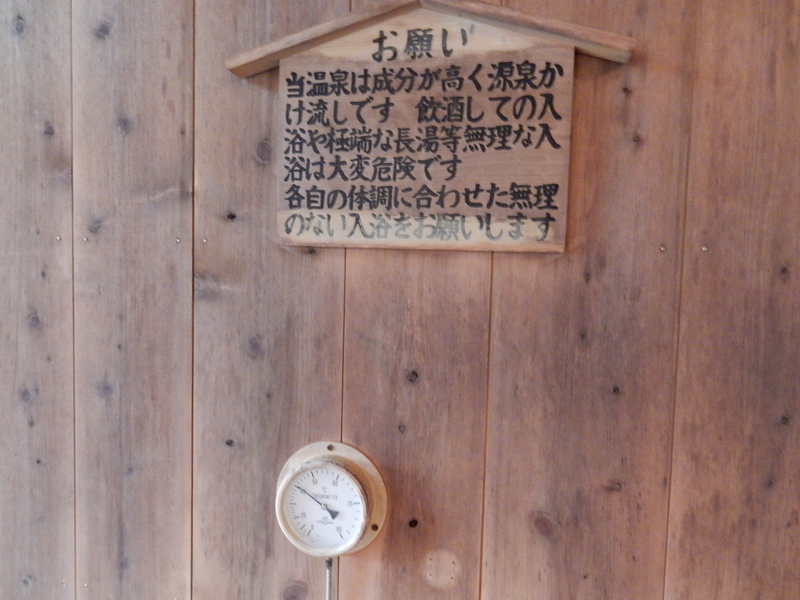 お願い
当温泉は成分が高く源泉か
け流しです　飲酒しての入
浴や極端な長湯等無理な入
浴は大変危険です
各自の体調に合わせた無理
のない入浴をお願いします
℃